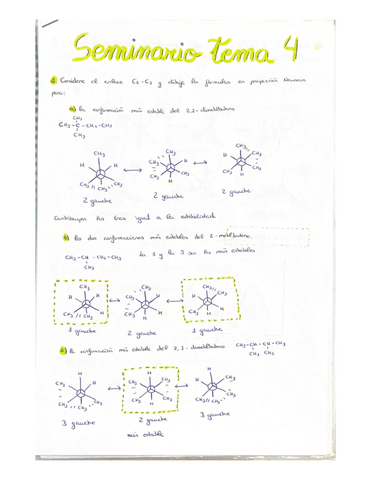 Seminario tema 4
1. Considere el enlace C2-C3 y dibuje las fórmulas en proyección Newman
para:
a) La conformación más estable del 2,2-dimetilbutano
CH3
CH3-C-CH2-CH3
CH3
CH3 H H CH3 CH3
2 gauche 2 gauche 2 gauche
las tres igual a la estabilidad
b) Las dos conformaciones más estables del 2-metilbutano.
CH3-CH-CH2-CH3 la 1 y la 3 son las más estables
CH3
1 gauche 2 gauche 1 gauche
c) La conformación más estable del 2,3-dimetilbutano CH3-CH-CH-CH3
CH3 CH3
3 gauche 2 gauche 3 gauche
más estable